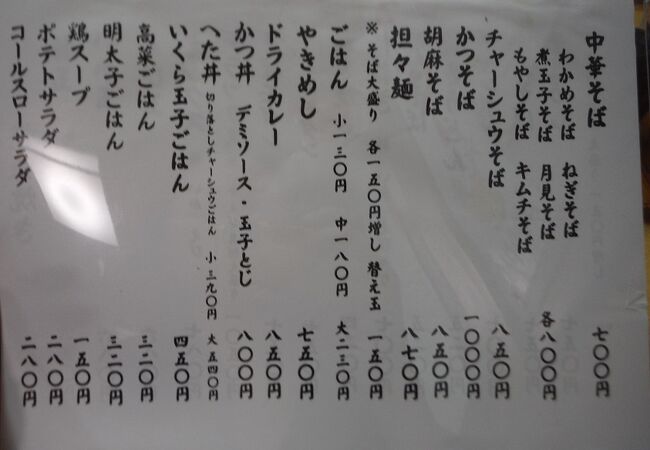 中華そば 七〇〇円
わかめそば ねぎそば
煮玉子そば 月見そば 各八〇〇円
もやしそば キムチそば
チャーシュウそば 八五〇円
かつそば 一〇〇〇円
胡麻そば 八五〇円
担々麺 八七〇円
※そば大盛り 各一五〇円増し 替え玉 一五〇円
ごはん 小一三〇円 中一八〇円 大二三〇円
やきめし 七五〇円
ドライカレー 八五〇円
かつ丼 デミソース・玉子とじ 八〇〇円
へた丼 切り落としチャーシュウごはん 小 三九〇円 大 五四〇円
いくら玉子ごはん 四五〇円
高菜ごはん 三二〇円
明太子ごはん 三二〇円
鶏スープ 一五〇円
ポテトサラダ 二八〇円
コールスローサラダ 二八〇円